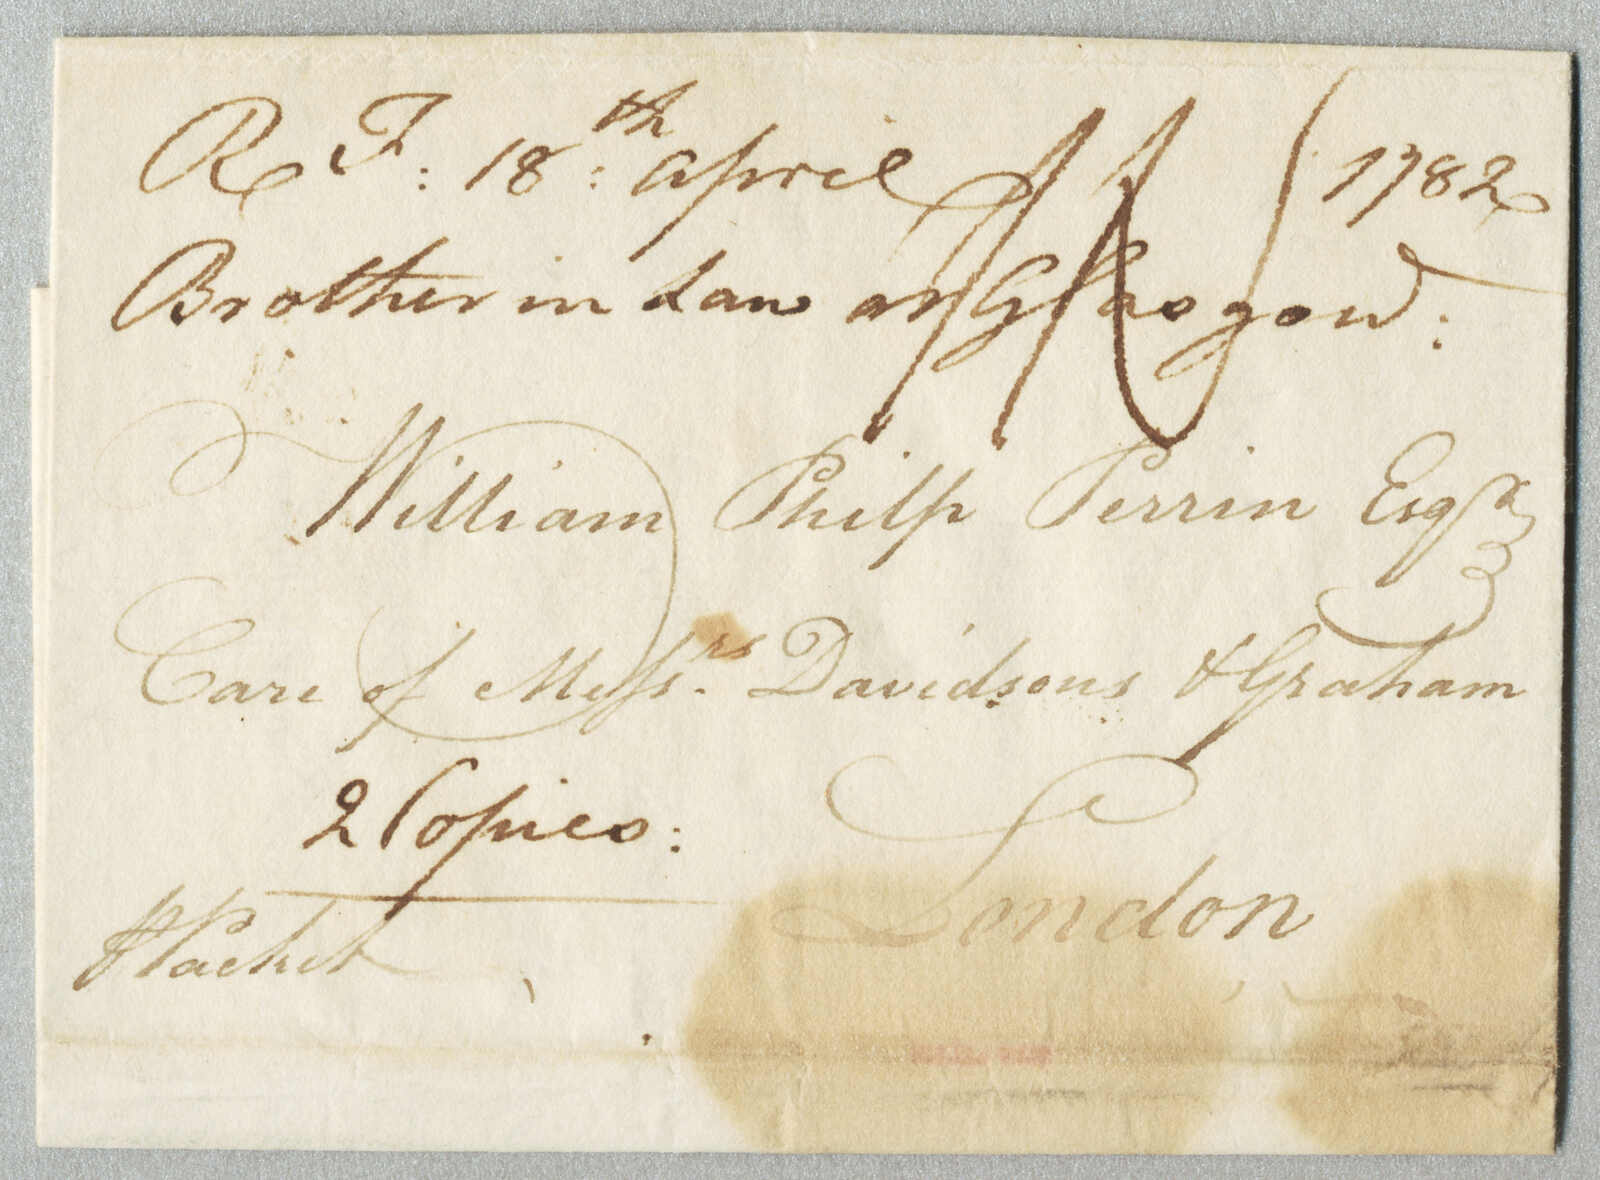 R F: 18:th april 1782
Brother in Law at Glasgow:
William Philp Perrin Esqr
Care of Messrs Davidsons & Graham
2 Copies:
London
Packet